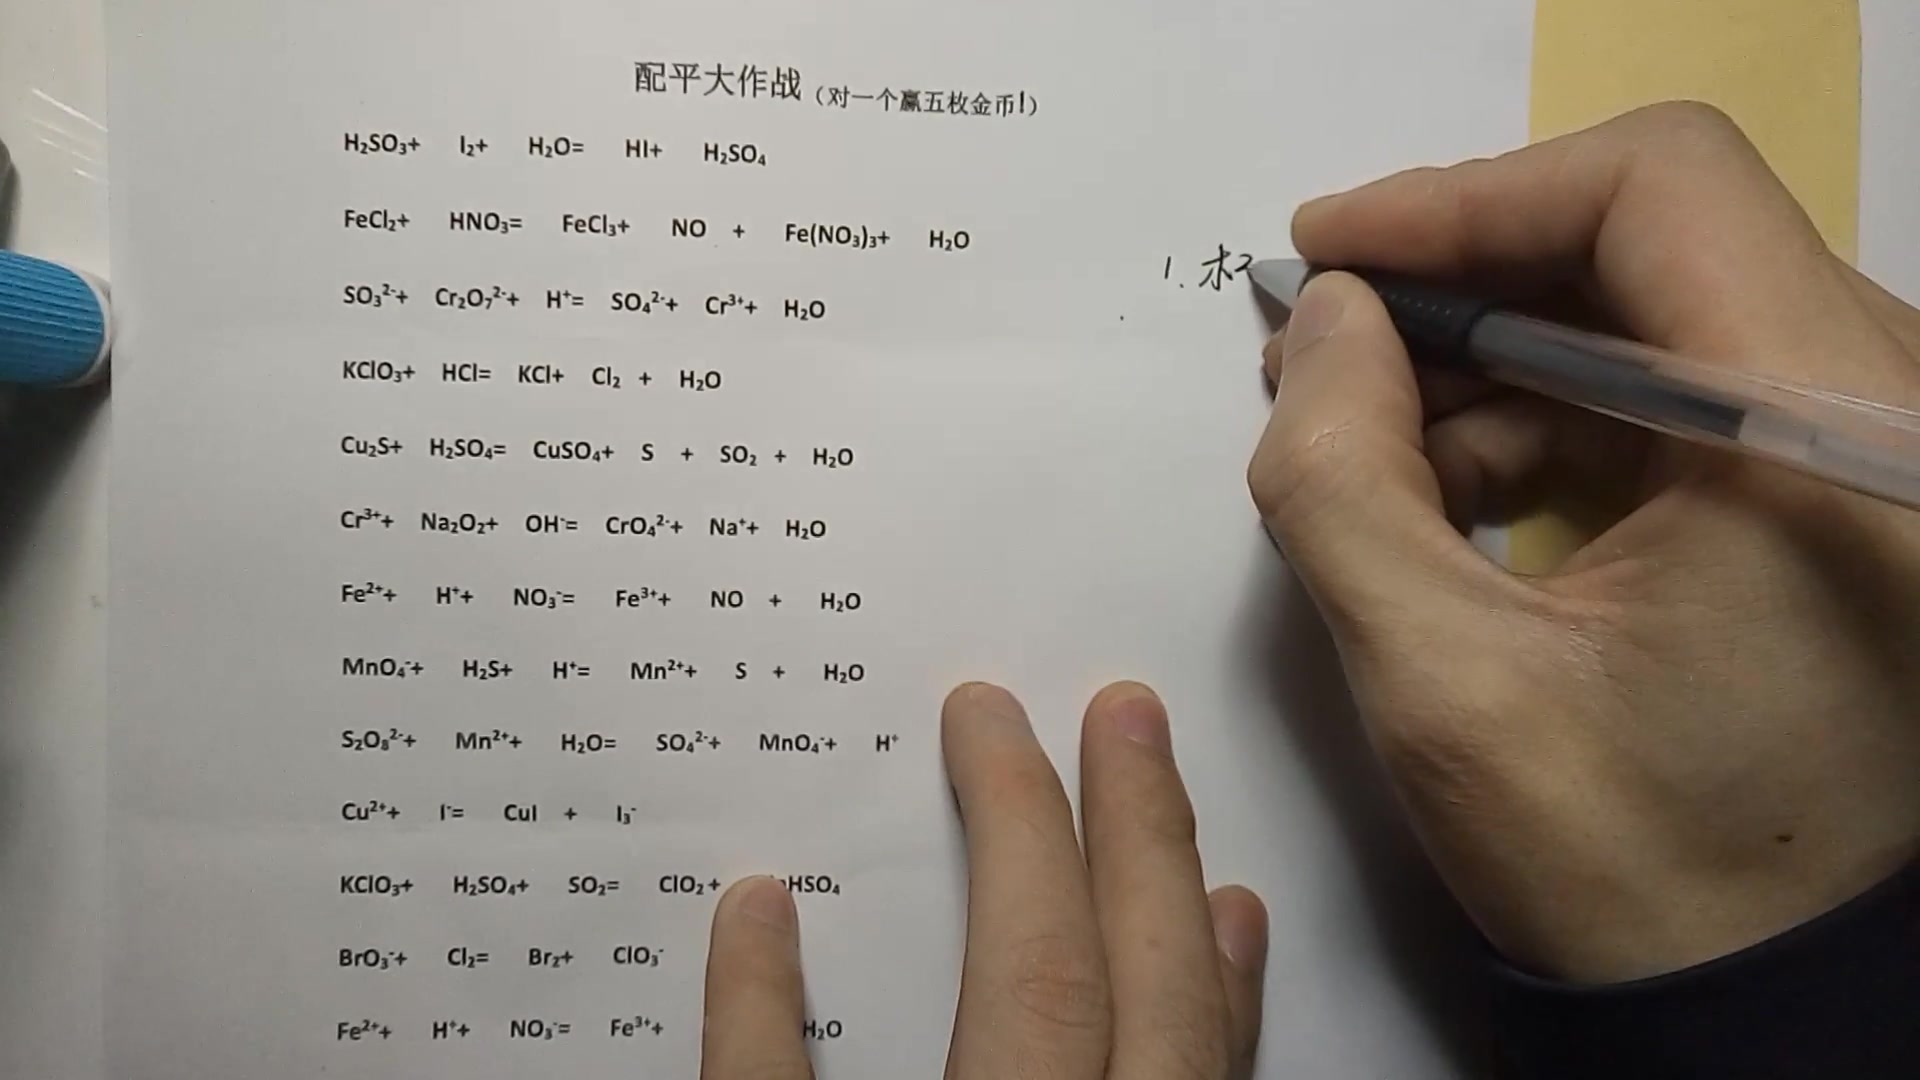 配平大作战（对一个赢五枚金币!）
H₂SO₃+ I₂+ H₂O= HI+ H₂SO₄
FeCl₂+ HNO₃= FeCl₃+ NO + Fe(NO₃)₃+ H₂O
SO₃²⁻+ Cr₂O₇²⁻+ H⁺= SO₄²⁻+ Cr³⁺+ H₂O
1.
KClO₃+ HCl= KCl+ Cl₂ + H₂O
Cu₂S+ H₂SO₄= CuSO₄+ S + SO₂ + H₂O
Cr³⁺+ Na₂O₂+ OH⁻= CrO₄²⁻+ Na⁺+ H₂O
Fe²⁺+ H⁺+ NO₃⁻= Fe³⁺+ NO + H₂O
MnO₄⁻+ H₂S+ H⁺= Mn²⁺+ S + H₂O
S₂O₈²⁻+ Mn²⁺+ H₂O= SO₄²⁻+ MnO₄⁻+ H⁺
Cu²⁺+ I⁻= CuI + I₃⁻
KClO₃+ H₂SO₄+ SO₂= ClO₂+ HSO₄
BrO₃⁻+ Cl₂= Br₂+ ClO₃⁻
Fe²⁺+ H⁺+ NO₃⁻= Fe³⁺+ H₂O